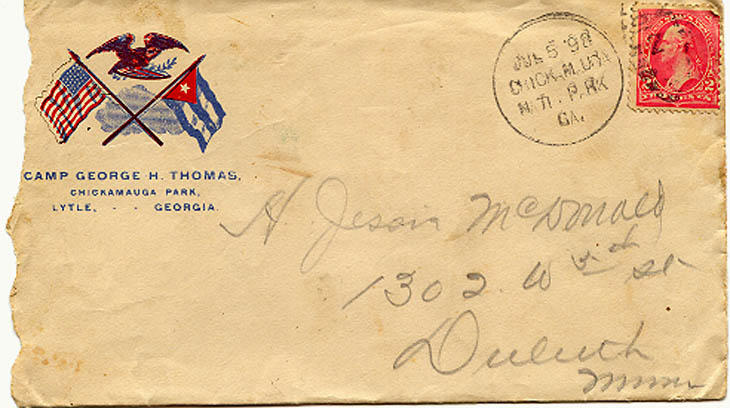 CAMP GEORGE H. THOMAS,
CHICKAMAUGA PARK,
LYTLE, - - GEORGIA.
JUL 5 '98
CHICKAMAUGA
NATL. PARK
GA.
2 2
A Jessie McDonald
1302 W 3rd St
Duluth
Minn